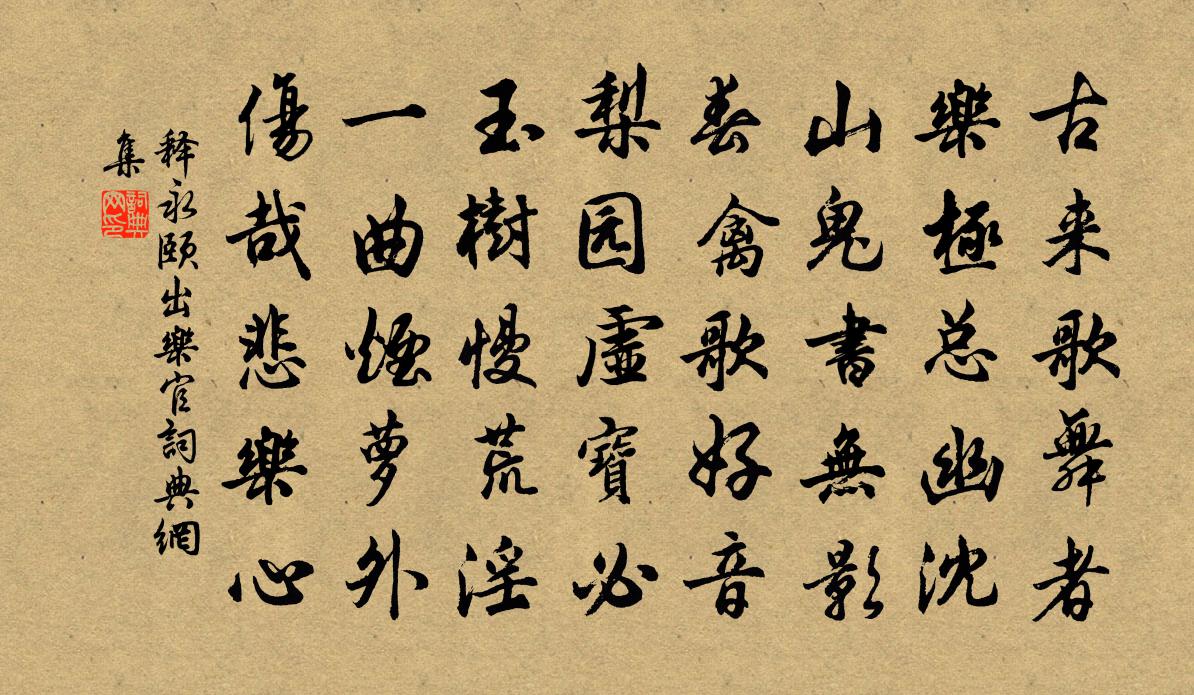 古来歌舞者
樂極总幽沈
山鬼書無影
春禽歌好音
梨园虛寶必
玉樹慢荒淫
一曲煙夢外
傷哉悲樂心
释永頤出樂官詞典網
集
詞典网印